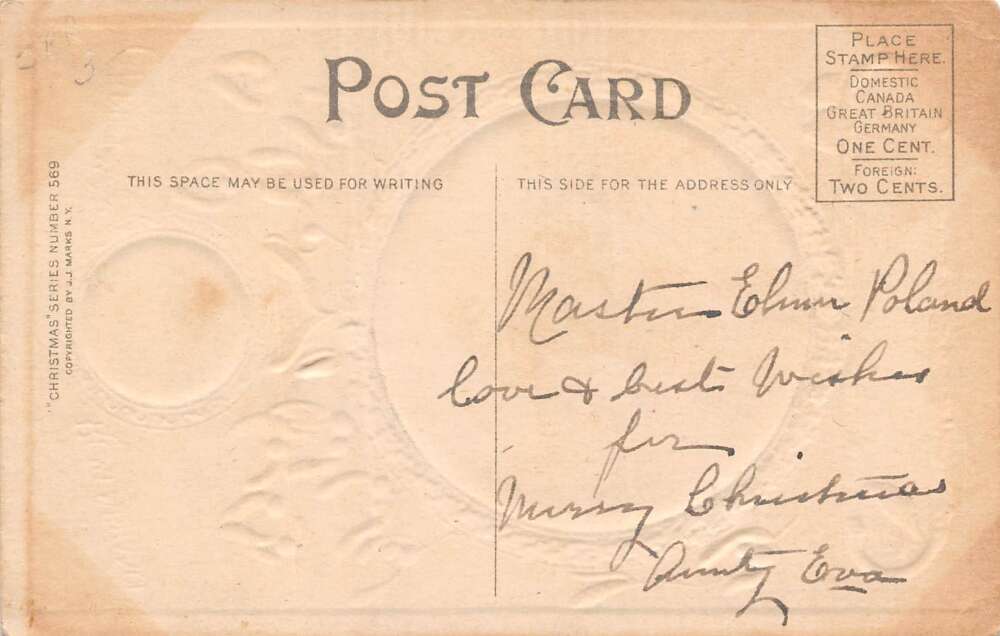 POST CARD
PLACE
STAMP HERE.
DOMESTIC
CANADA
GREAT BRITAIN
GERMANY
ONE CENT.
FOREIGN:
TWO CENTS.
THIS SPACE MAY BE USED FOR WRITING
THIS SIDE FOR THE ADDRESS ONLY
"CHRISTMAS" SERIES NUMBER 569
COPYRIGHTED BY J.J. MARKS N.Y.
Master Elmer Poland
Love & best Wishes
for
Merry Christmas
Aunty Eva